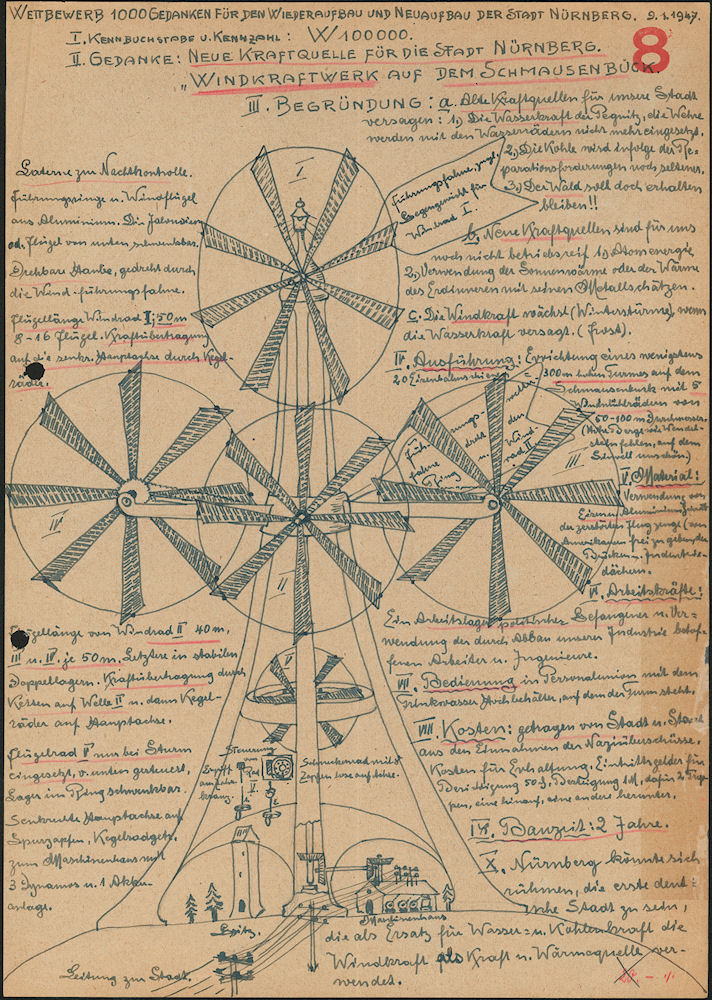 WETTBEWERB 1000 GEDANKEN FÜR DEN WIEDERAUFBAU UND NEUAUFBAU DER STADT NÜRNBERG. 9.1.1947.
8
I. KENNBUCHSTABE U. KENNZAHL: W 100000.
II. GEDANKE: NEUE KRAFTQUELLE FÜR DIE STADT NÜRNBERG.
"WINDKRAFTWERK AUF DEM SCHMAUSENBÜCK.
III. BEGRÜNDUNG: a. Alte Kraftquellen für unsere Stadt
versagen: 1.) Die Wasserkraft der Pegnitz, die Wehre
werden mit den Wasserrädern nicht mehr eingesetzt.
2.) Die Kohle wird infolge der Re-
parationsforderungen noch seltener.
3.) Der Wald soll doch erhalten
bleiben!!
b. Neue Kraftquellen sind für uns
noch nicht betriebsreif 1.) Atomenergie
2.) Verwendung der Sonnenwärme oder der Wärme
des Erdinneren mit seinen Metallschätzen.
c. Die Windkraft wächst (Winterstürme), wenn
die Wasserkraft versagt. (Frost).
IV. Ausführung: Errichtung eines wenigstens
300 m hohen Turmes auf dem
Schmausenbuck mit 5
Windmühlrädern von
50-100 m Durchmesser.
fehlen, auf dem
V. Material:
Verwendung von
Eisen
der zerstörten Flugzeuge (von
Amerikanern frei zu geben), der
Brücken- Industrie-
dächern.
VI. Arbeitskräfte:
Ein Arbeitslager politischer Gefangener u. Ver=
wendung der durch Abbau unserer Industrie
Arbeiter u. Ingenieure.
VII. Bedienung in Personalunion mit dem
Trinkwasser Hochbehälter, auf dem der Turm steht.
VIII. Kosten: getragen von Stadt u. Staat
aus den Einnahmen der Naziüberschüsse.
Kosten für Erhaltung, Eintrittsgelder für
Besichtigung 50 ₰, Besteigung 1 M, dafür 2 Trep-
pen, eine hinauf, eine andere herunter.
IX. Bauzeit: 2 Jahre.
X. Nürnberg könnte sich
rühmen, die erste deut=
sche Stadt zu sein,
die als Ersatz für Wasser= u. Kohlenkraft die
Windkraft als Kraft u. Wärmequelle ver-
wendet.
Laterne zur Nachtkontrolle.
Führungsringe u. Windflügel
aus Aluminium. Die Jalousien
od. Flügel von unten
Drehbare Haube, gedreht durch
die Wind-führungsfahne.
Flügellänge Windrad I: 50 m
8-16 Flügel. Kraftübertragung
auf die senkr. Hauptachse durch Kegel-
räder.
Führungsfahne, zugl.
Gegengewicht für
Windrad I.
I
II
III
IV
V
Flügellänge von Windrad II 40 m,
III u. IV. je 50 m. Letztere in stabilen
Doppellagern. Kraftübertragung durch
Ketten auf Welle II u. dann Kegel-
räder auf Hauptachse.
Flügelrad V nur bei Sturm
eingesetzt, v. unten gesteuert,
Lager im Ring schwenkbar.
Senkrechte Hauptachse auf
Spurzapfen, Kegelradgetr.
zum Maschinenhaus mit
3 Dynamos u. 1 Akku-
anlage.
Steuerung
von
Rad
V.
Schneckenrad mit
Zapfen lose auf Achse.
Maschinenhaus
Leitung zur Stadt.